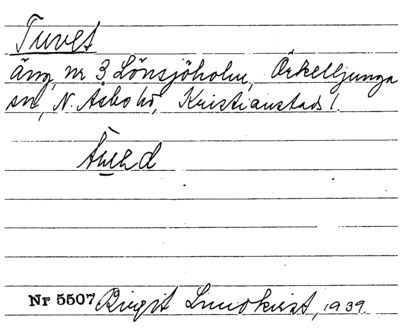 Tuvet
äng, nr 3 Lönsjöholm, Örkelljunga
sn, N. Åsbo hd, Kristianstads l.
Nr 5507 Birgit Lundkvist, 1939.